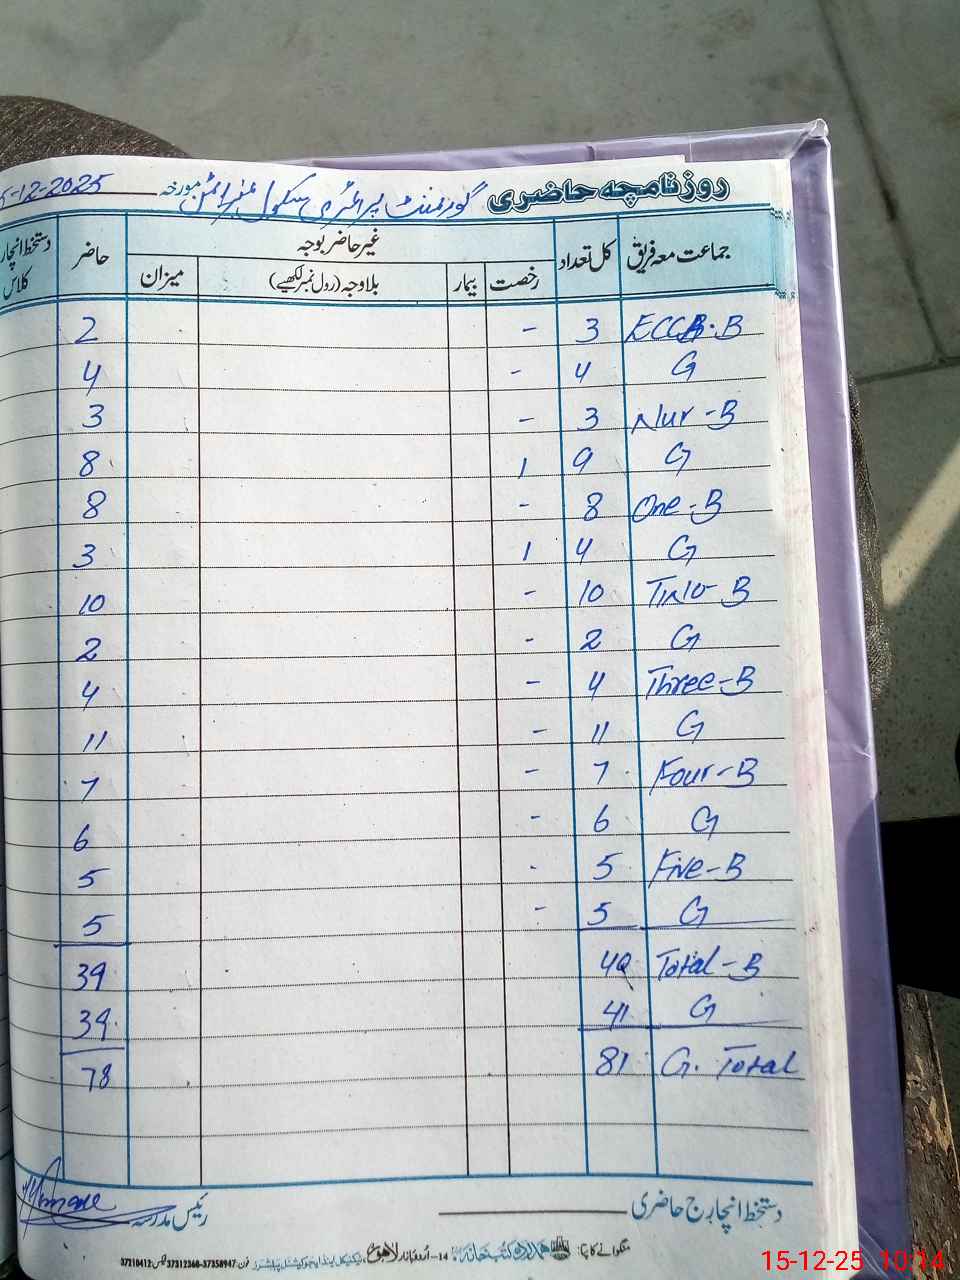 روزنامچہ حاضری گورنمنٹ پرائمری سکول مورخہ 5-12-2025
جماعت معہ فریق کل تعداد غیر حاضر بوجہ حاضر دستخط انچارج کلاس
رخصت بیمار بلاوجہ (رول نمبر لکھیے) میزان
ECCE-B 3 - 2
G 4 - 4
Nur-B 3 - 3
G 9 1 8
One-B 8 - 8
G 4 1 3
Two-B 10 - 10
G 2 - 2
Three-B 4 - 4
G 11 - 11
Four-B 7 - 7
G 6 - 6
Five-B 5 - 5
G 5 - 5
Total-B 40 39
G 41 39
G. Total 81 78
دستخط انچارج حاضری رئیس مدرسہ
منگوانے کا پتا: ہمدرد کتب خانہ 14-اردو بازار لاہور فون 37358947-37312360 فیکس 37210412
15-12-25 10:14